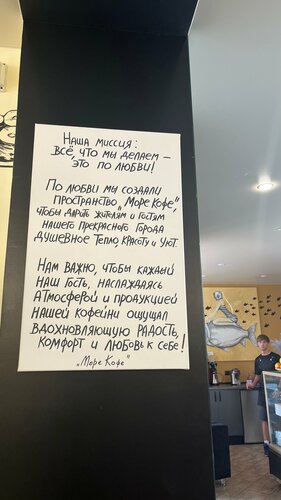 Наша миссия:
Всё, что мы делаем –
это по любви!
По любви мы создали
пространство „Море Кофе",
чтобы дарить жителям и гостям
нашего прекрасного города
душевное тепло, красоту и уют.
Нам важно, чтобы каждый
наш гость, наслаждаясь
атмосферой и продукцией
нашей кофейни ощущал
вдохновляющую радость,
комфорт и любовь к себе!
„Море Кофе"